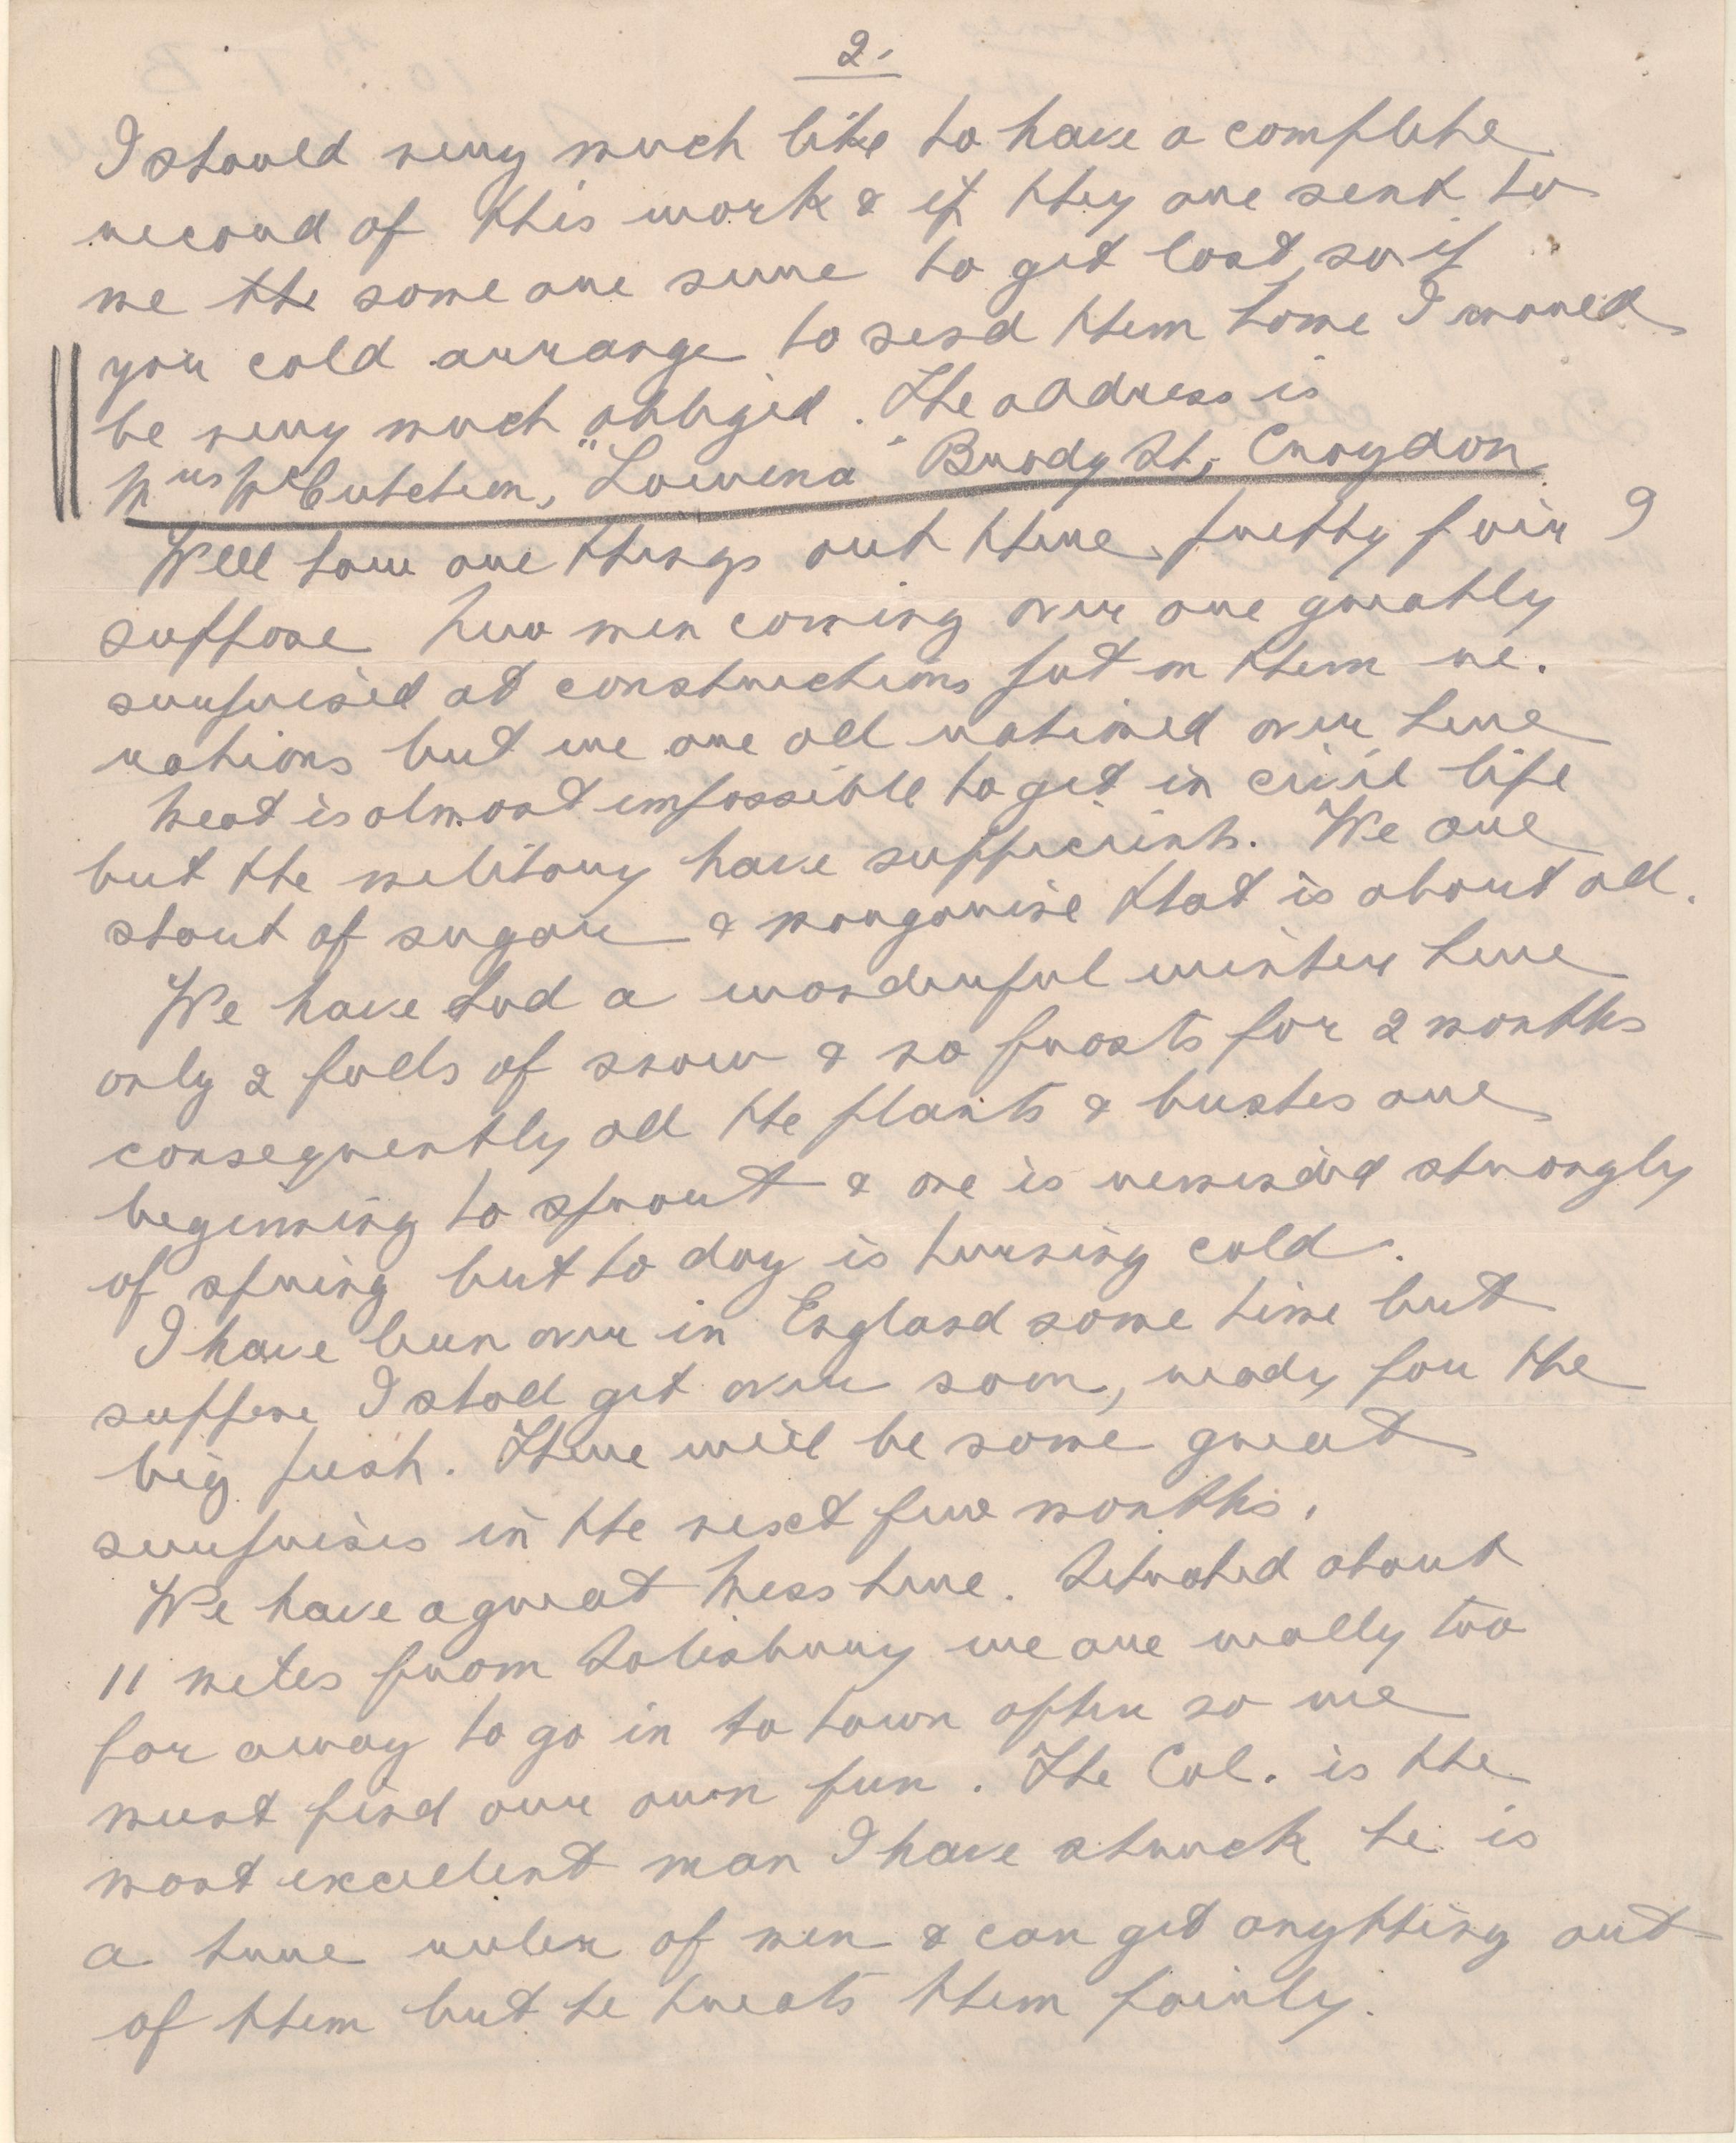 2.
I should very much like to have a complete
record of this work & if they are sent to
me the some are sure to get lost, so if
you cold arrange to send them home I would
be very much obliged. The address is
Mrs McCutchen, "Lowena" Brady St, Croydon
Well how are things out there, pretty fair I
suppose New men coming over are greatly
surprised at constructions put on them re.
rations but we are all rationed over here
Meat is almost impossible to get in civil life
but the military have sufficient. We are
short of sugar & margarine that is about all.
We have had a wonderful winter here
only 2 falls of snow & no frosts for 2 months
consequently all the plants & bushes are
beginning to sprout & one is reminded strongly
of spring but to day is turning cold.
I have been over in England some time but
suppose I shall get over soon, ready for the
big push. There will be some great
surprises in the next few months.
We have a great Mess here. Situated about
11 miles from Salisbury we are really too
far away to go in to town often so we
must find our own fun. The Col. is the
most excellent man I have struck he is
a true ruler of men & can get anything out
of them but he treats them fairly.